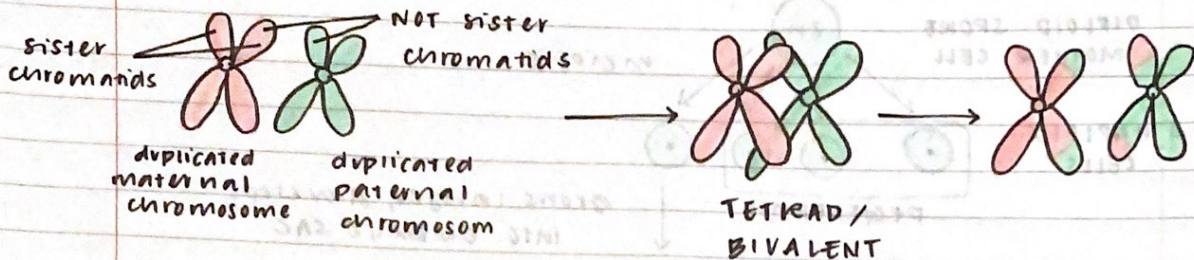 sister
chromatids
NOT sister
chromatids
duplicated
maternal
chromosome
duplicated
paternal
chromosom
TETRAD/
BIVALENT